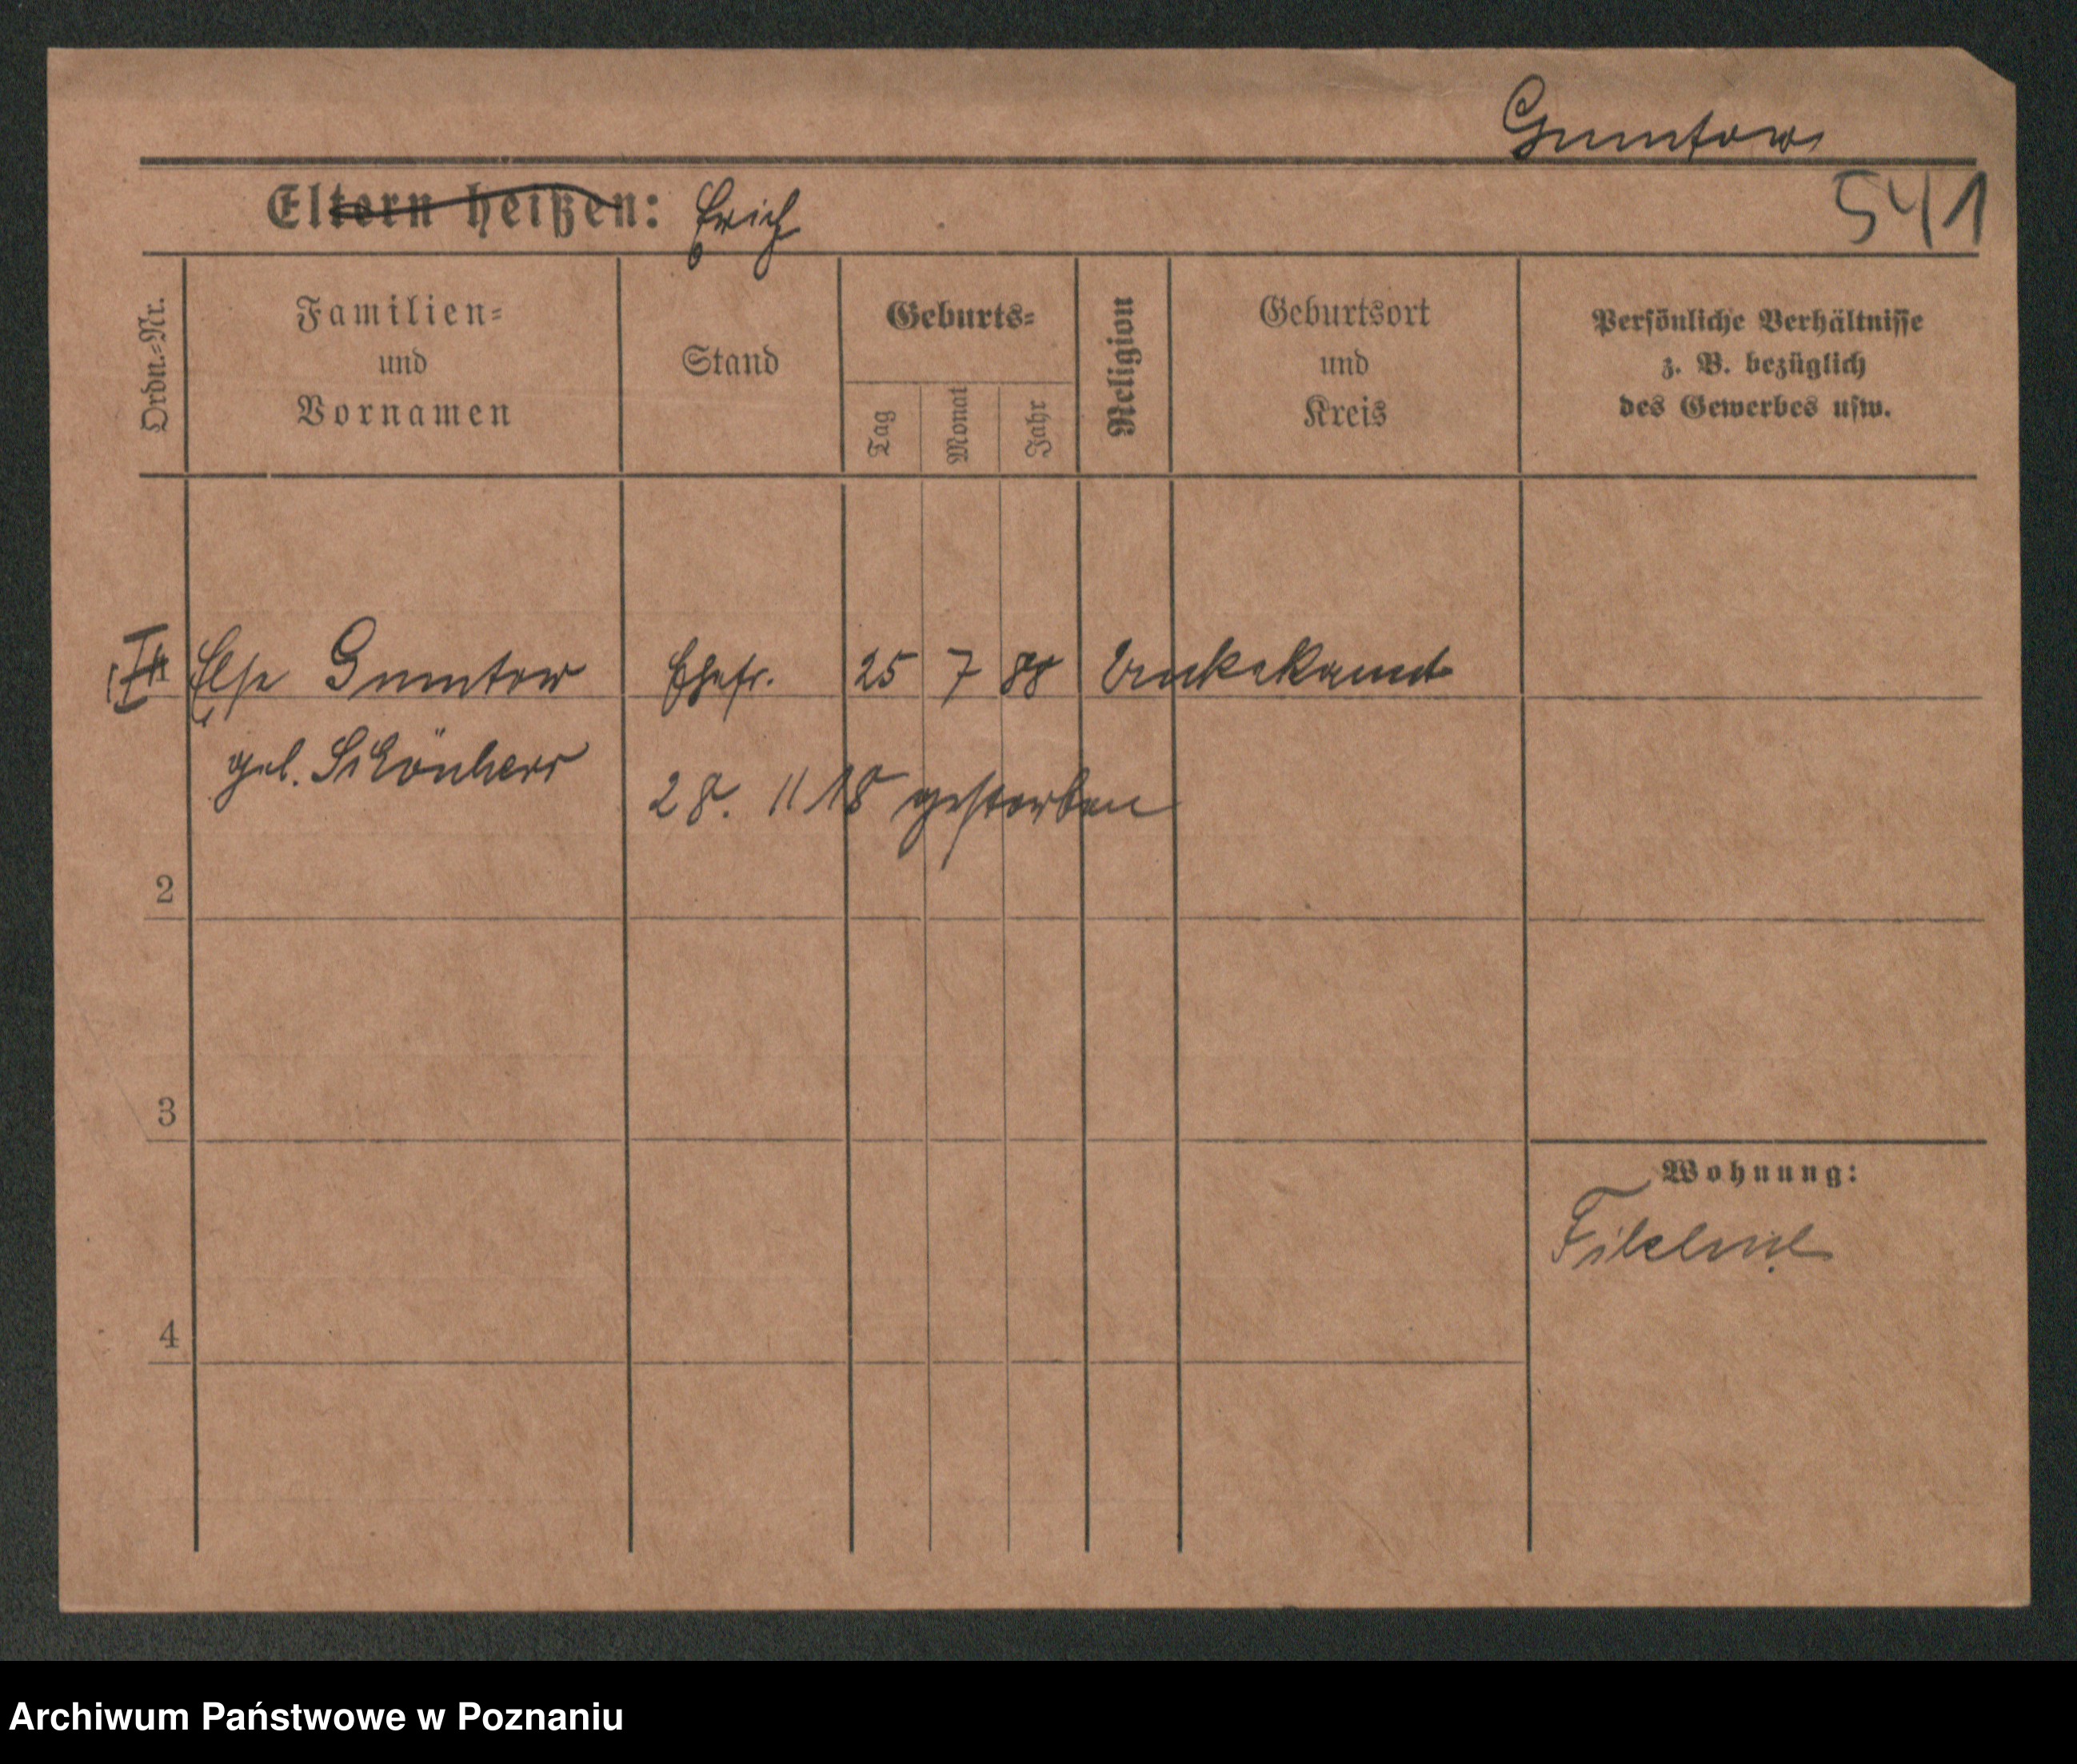 Gumtow
Eltern heißen: Erich
541
Ordn.=Nr.
Familien=
und
Vornamen
Stand
Geburts=
Tag
Monat
Jahr
Religion
Geburtsort
und
Kreis
Persönliche Verhältnisse
z. B. bezüglich
des Gewerbes usw.
Else Gumtow Ehefr. 25 7 88
geb. Schönherr
28. 11 18 gestorben
2
3
Wohnung:
Filehne
4
Archiwum Państwowe w Poznaniu